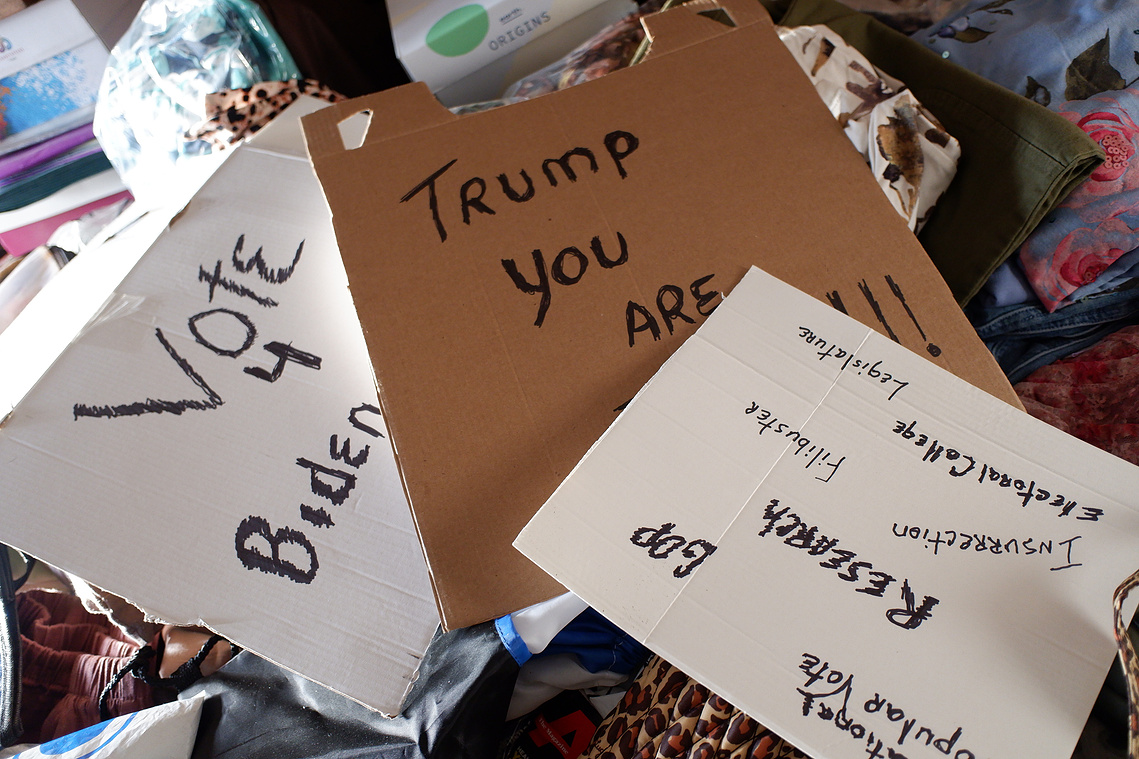 ORIGINS
VOTE
4
BIDEN
TRUMP
YOU
ARE
!!!
Legislature
Electoral College
Filibuster
INSURRECTION
RESEARCH
GOP
ational
opular Vote